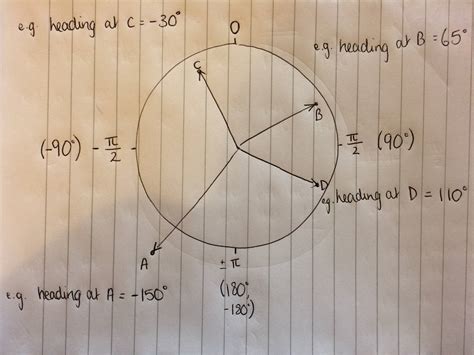 e.g. heading at C = -30°
0
e.g. heading at B = 65°
C
B
(-90°) - π/2
π/2 (90°)
D
e.g. heading at D = 110°
A
± π
e.g. heading at A = -150°
(180°,
-180°)